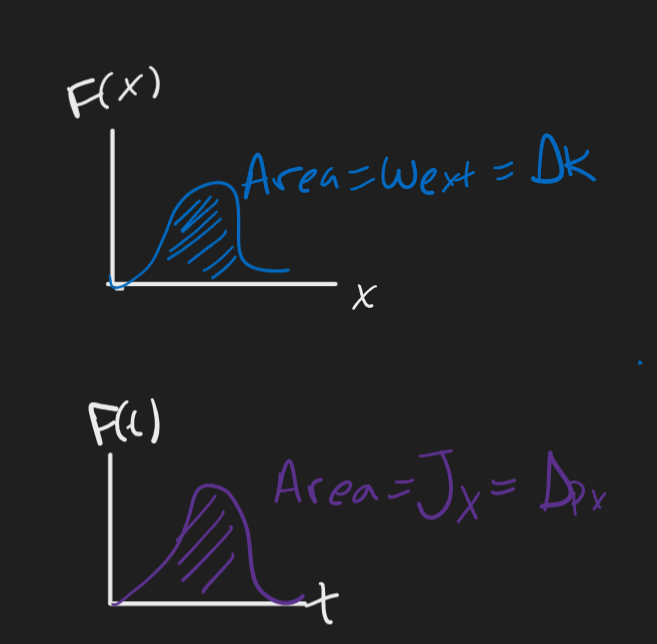 F(x)
Area = Wext = ΔK
x
F(t)
Area = Jx = Δpx
t